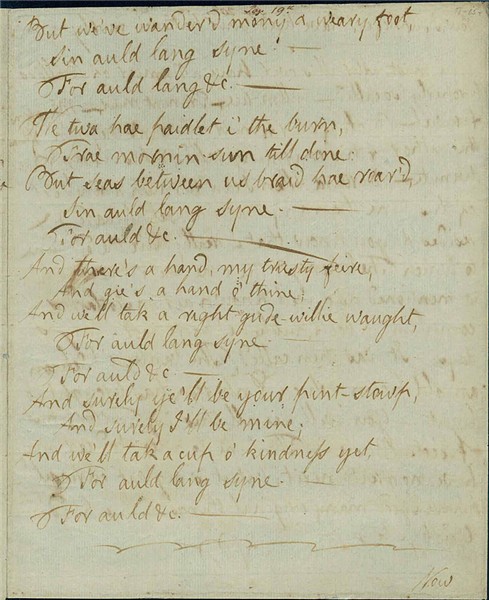 But we've wander'd mony a weary foot,
Sin auld lang syne.
For auld lang &c.
We twa hae paidlet i' the burn,
Frae mornin sun till dine:
But seas between us braid hae roar'd,
Sin auld lang syne.
For auld &c.
And there's a hand, my trusty feire,
And gie's a hand o' thine;
And we'll tak a right gude-willie waught,
For auld lang syne
For auld &c
And surely ye'll be your pint-stowp,
And surely I'll be mine;
And we'll tak a cup o' kindness yet,
For auld lang syne.
For auld &c.
Now